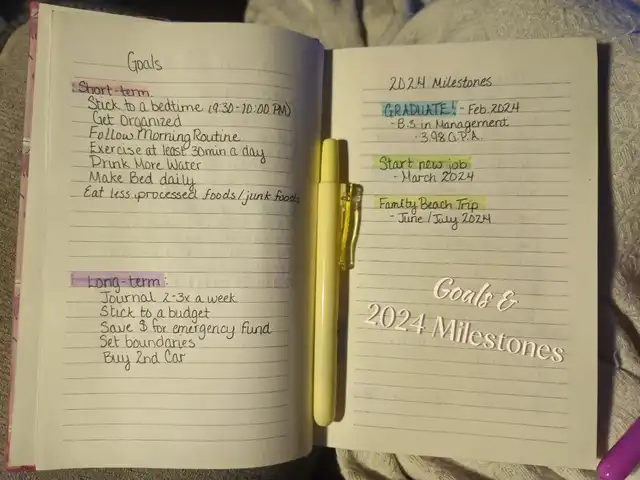 Goals
Short-term
Stick to a bedtime (9:30-10:00 PM)
Get Organized
Follow Morning Routine
Exercise at least 30min a day
Drink More Water
Make Bed daily
Eat less processed foods/junk foods
Long-term
Journal 2-3x a week
Stick to a budget
Save $ for emergency fund
Set boundaries
Buy 2nd Car
2024 Milestones
GRADUATE! - Feb. 2024
- B.S. in Management
· 3.98 G.P.A.
Start new job
- March 2024
Family Beach Trip
- June/July 2024
Goals &
2024 Milestones